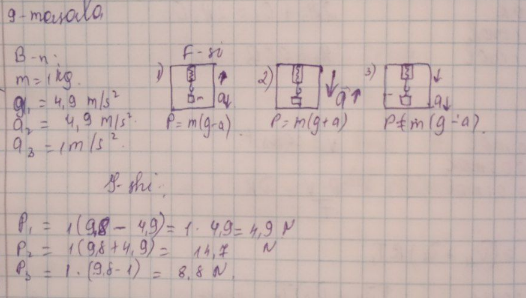 9-masala
B-n:
F-si
m = 1 kg.
1) 2) 3)
a₁ = 4,9 m/s²
a₂ = 4,9 m/s²
a₃ = 1 m/s²
P = m(g-a) P = m(g+a) P = m(g-a)
Y-shi:
P₁ = 1(9,8 - 4,9) = 1 · 4,9 = 4,9 N
P₂ = 1(9,8 + 4,9) = 14,7 N
P₃ = 1 · (9,8 - 1) = 8,8 N.